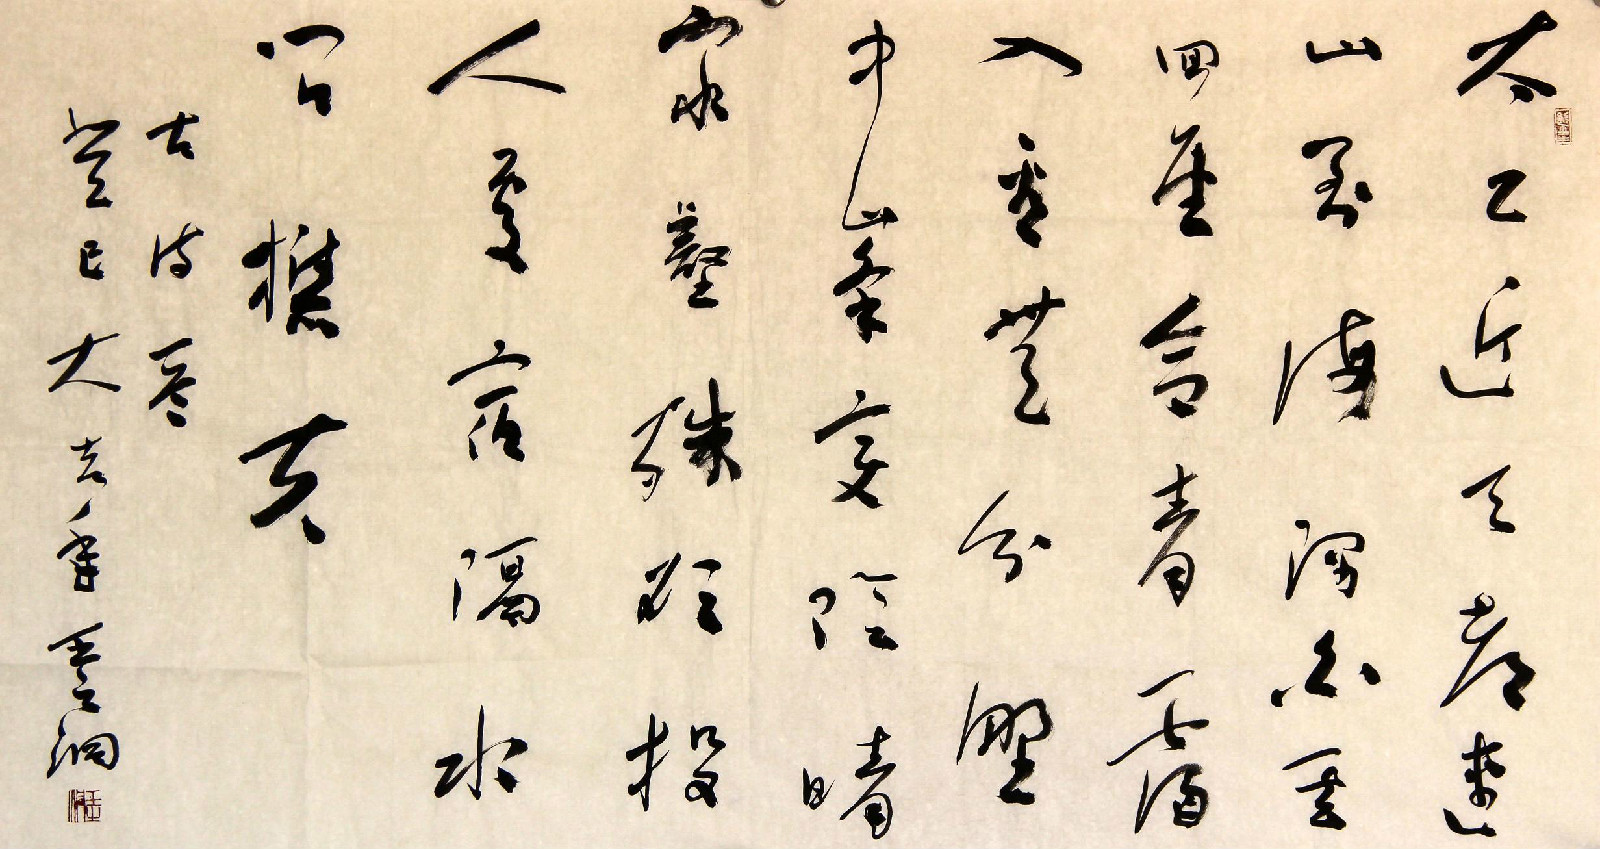 太乙近天都連
山到海隅白雲
回望合青靄
入看無分野
中峯變陰晴
眾壑殊欲投
人處宿隔水
問樵夫
古詩一首
癸巳大吉年